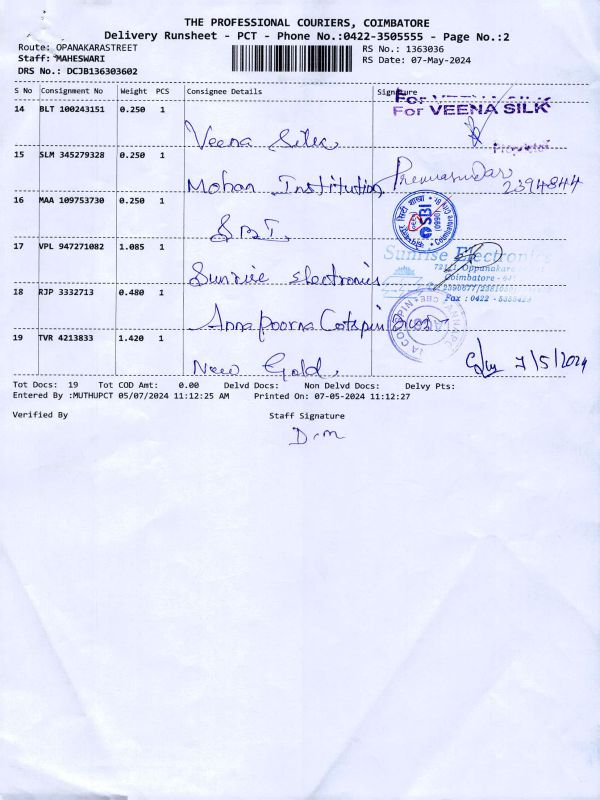 THE PROFESSIONAL COURIERS, COIMBATORE
Delivery Runsheet - PCT - Phone No.:0422-3505555 - Page No.:2
Route: OPANAKARASTREET
RS No.: 1363036
Staff: MAHESWARI
RS Date: 07-May-2024
DRS No.: DCJB136303602
S No Consignment No Weight PCS Consignee Details Signature
14 BLT 100243151 0.250 1
For VEENA SILK
For VEENA SILK
Veena Silk
Proprietor
15 SLM 345279328 0.250 1
Mohan Institution
2394844
16 MAA 109753730 0.250 1
SBI
SBI
17 VPL 947271082 1.085 1
Sunrise Electronics
Oppanakara
Coimbatore
Sunrise electronics
Fax : 0422 -
18 RJP 3332713 0.480 1
Annapoorna Cotspin
19 TVR 4213833 1.420 1
New Gold
7/5/2024
Tot Docs: 19 Tot COD Amt: 0.00 Delvd Docs: Non Delvd Docs: Delvy Pts:
Entered By :MUTHUPCT 05/07/2024 11:12:25 AM Printed On: 07-05-2024 11:12:27
Verified By Staff Signature